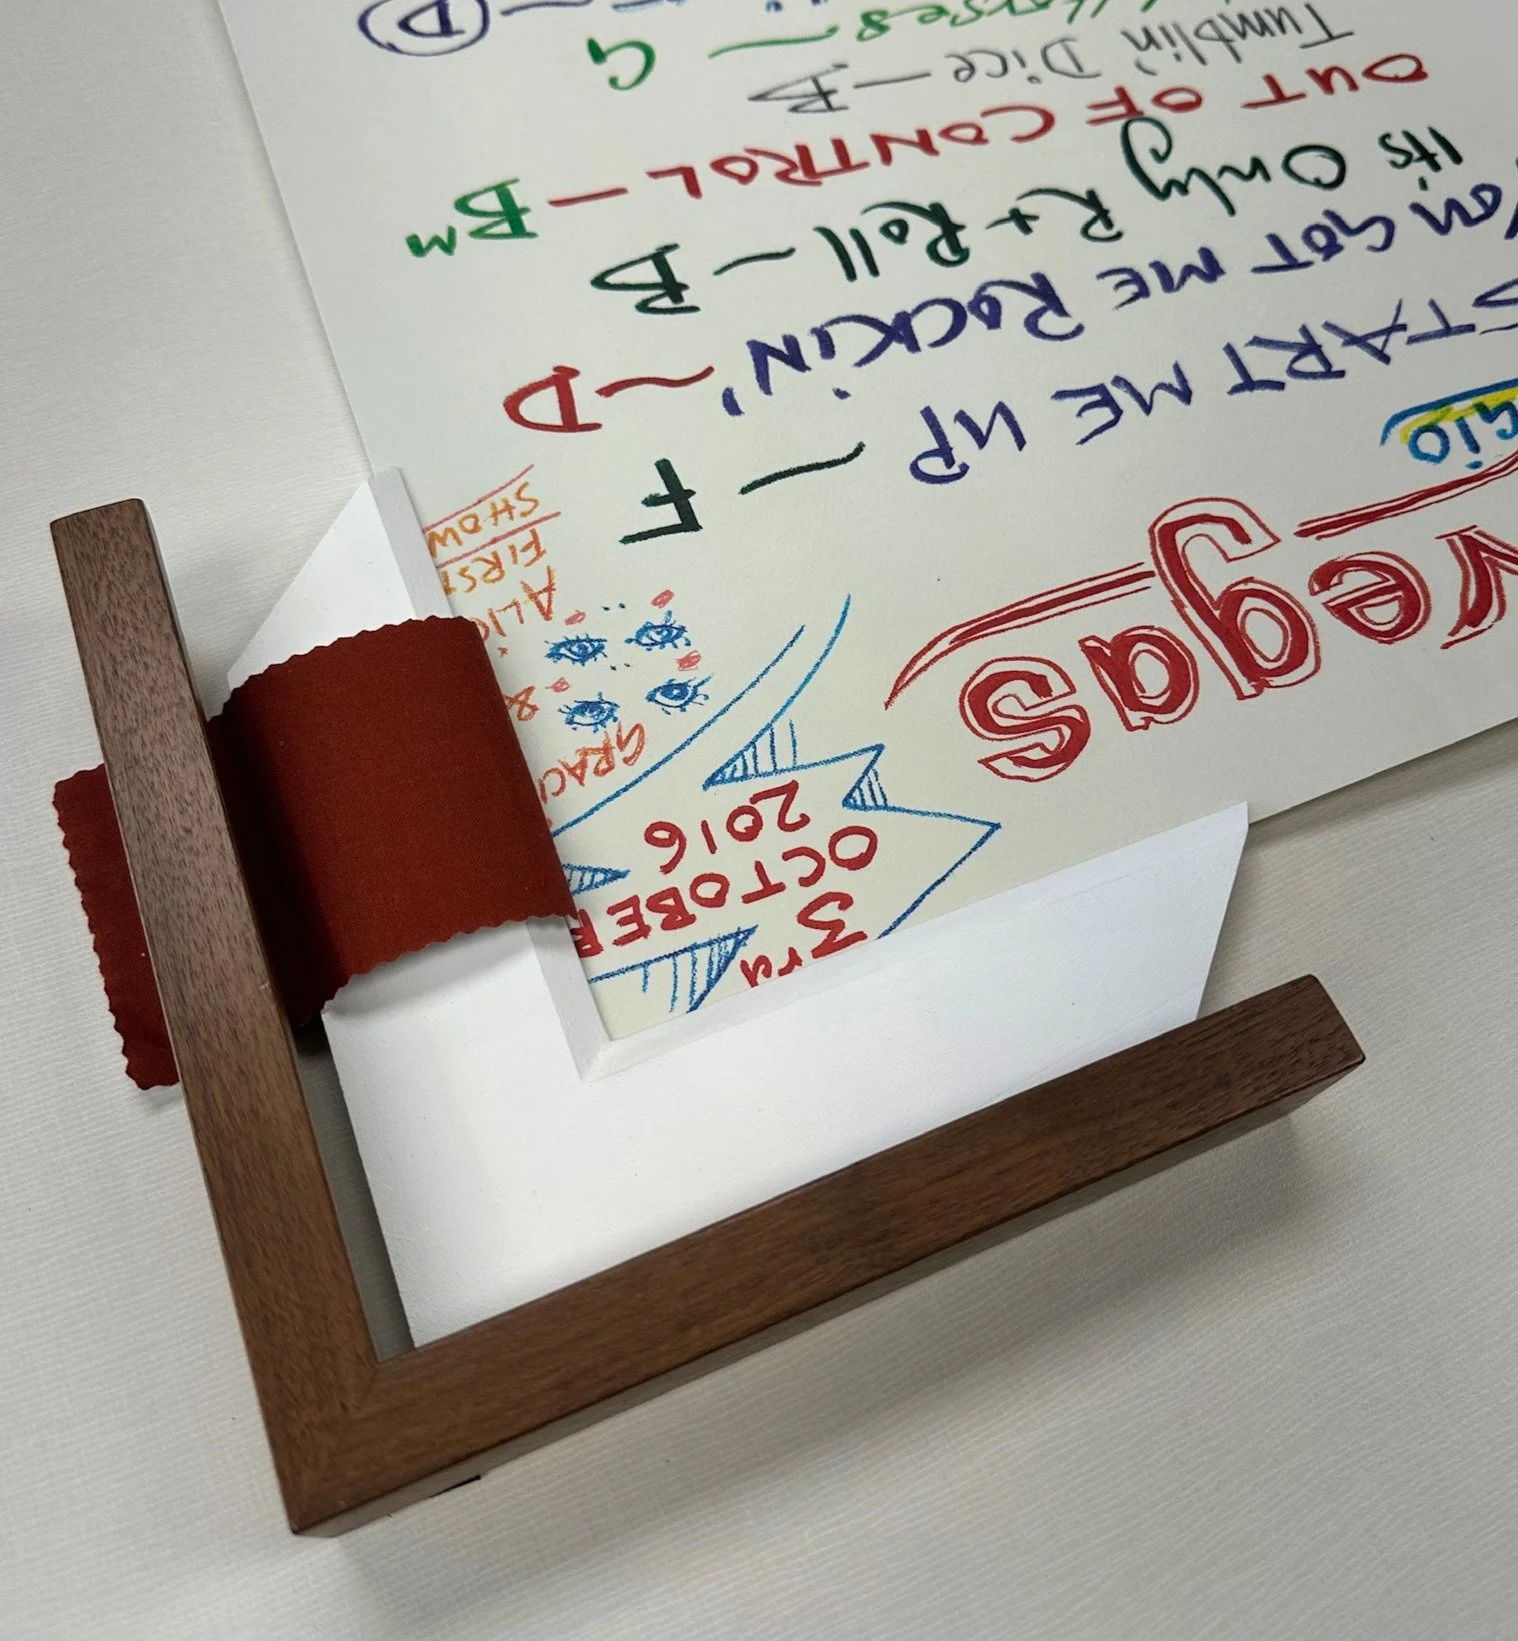 3rd
OCTOBER
2016
vegas
GRACI
&
ALIC
FIRST
SHOW
START ME UP — F
You GOT ME ROCKiN' — D
It's Only R + Roll — B
OUT OF CONTROL — Bm
Tumblin' Dice — B
Horses — G
D